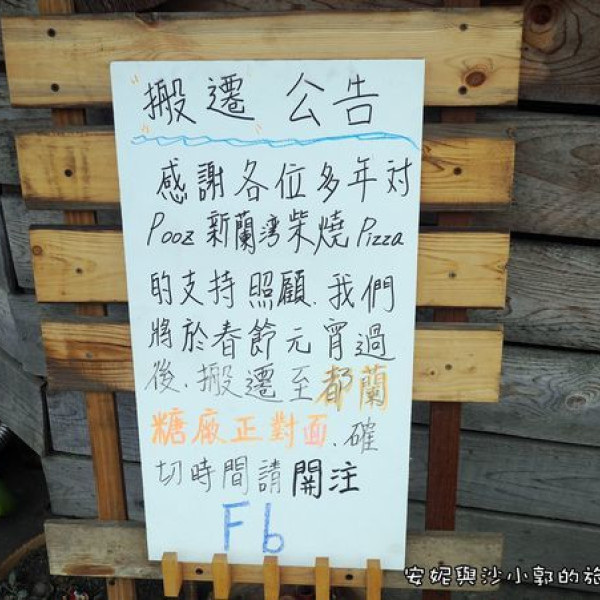 "搬遷"公告
感謝各位多年对
Pooz 新蘭湾柴燒Pizza
的支持照顧、我們
將於春節元宵過
後、搬遷至都蘭
糖廠正對面、確
切時間請關注
Fb
安妮與沙小郭的旅